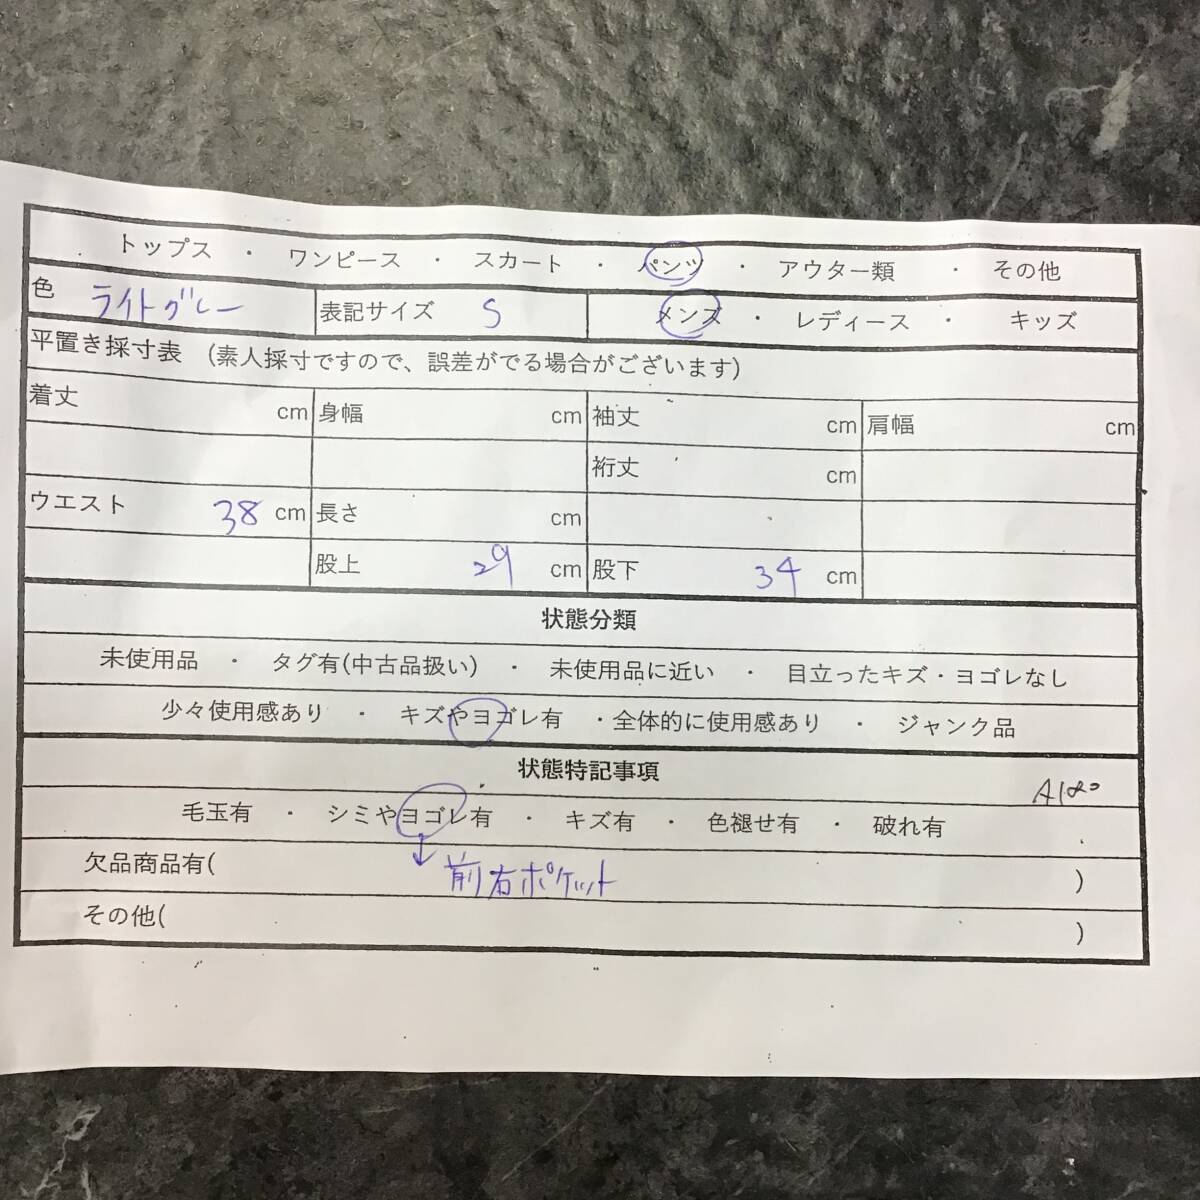 トップス ・ ワンピース ・ スカート ・ パンツ ・ アウター類 ・ その他
色 ライトグレー 表記サイズ S メンズ ・ レディース ・ キッズ
平置き採寸表 (素人採寸ですので、誤差がでる場合がございます)
着丈 cm 身幅 cm 袖丈 cm 肩幅 cm
裄丈 cm
ウエスト 38 cm 長さ cm
股上 29 cm 股下 34 cm
状態分類
未使用品 ・ タグ有(中古品扱い) ・ 未使用品に近い ・ 目立ったキズ・ヨゴレなし
少々使用感あり ・ キズやヨゴレ有 ・全体的に使用感あり ・ ジャンク品
状態特記事項
毛玉有 ・ シミやヨゴレ有 ・ キズ有 ・ 色褪せ有 ・ 破れ有
欠品商品有( 前右ポケット )
その他( )